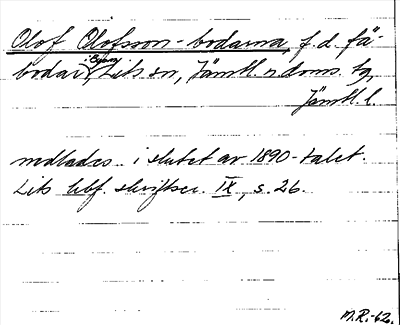 Olof Olofsson-bodarna, f.d. fä-
i Byom
bodar, Lits sn, Jämtl. n. doms. tg,
Jämtl. l.
nedlades i slutet av 1890-talet.
Lits hbf. skriftser. IX, s. 26.
M.R.-62.